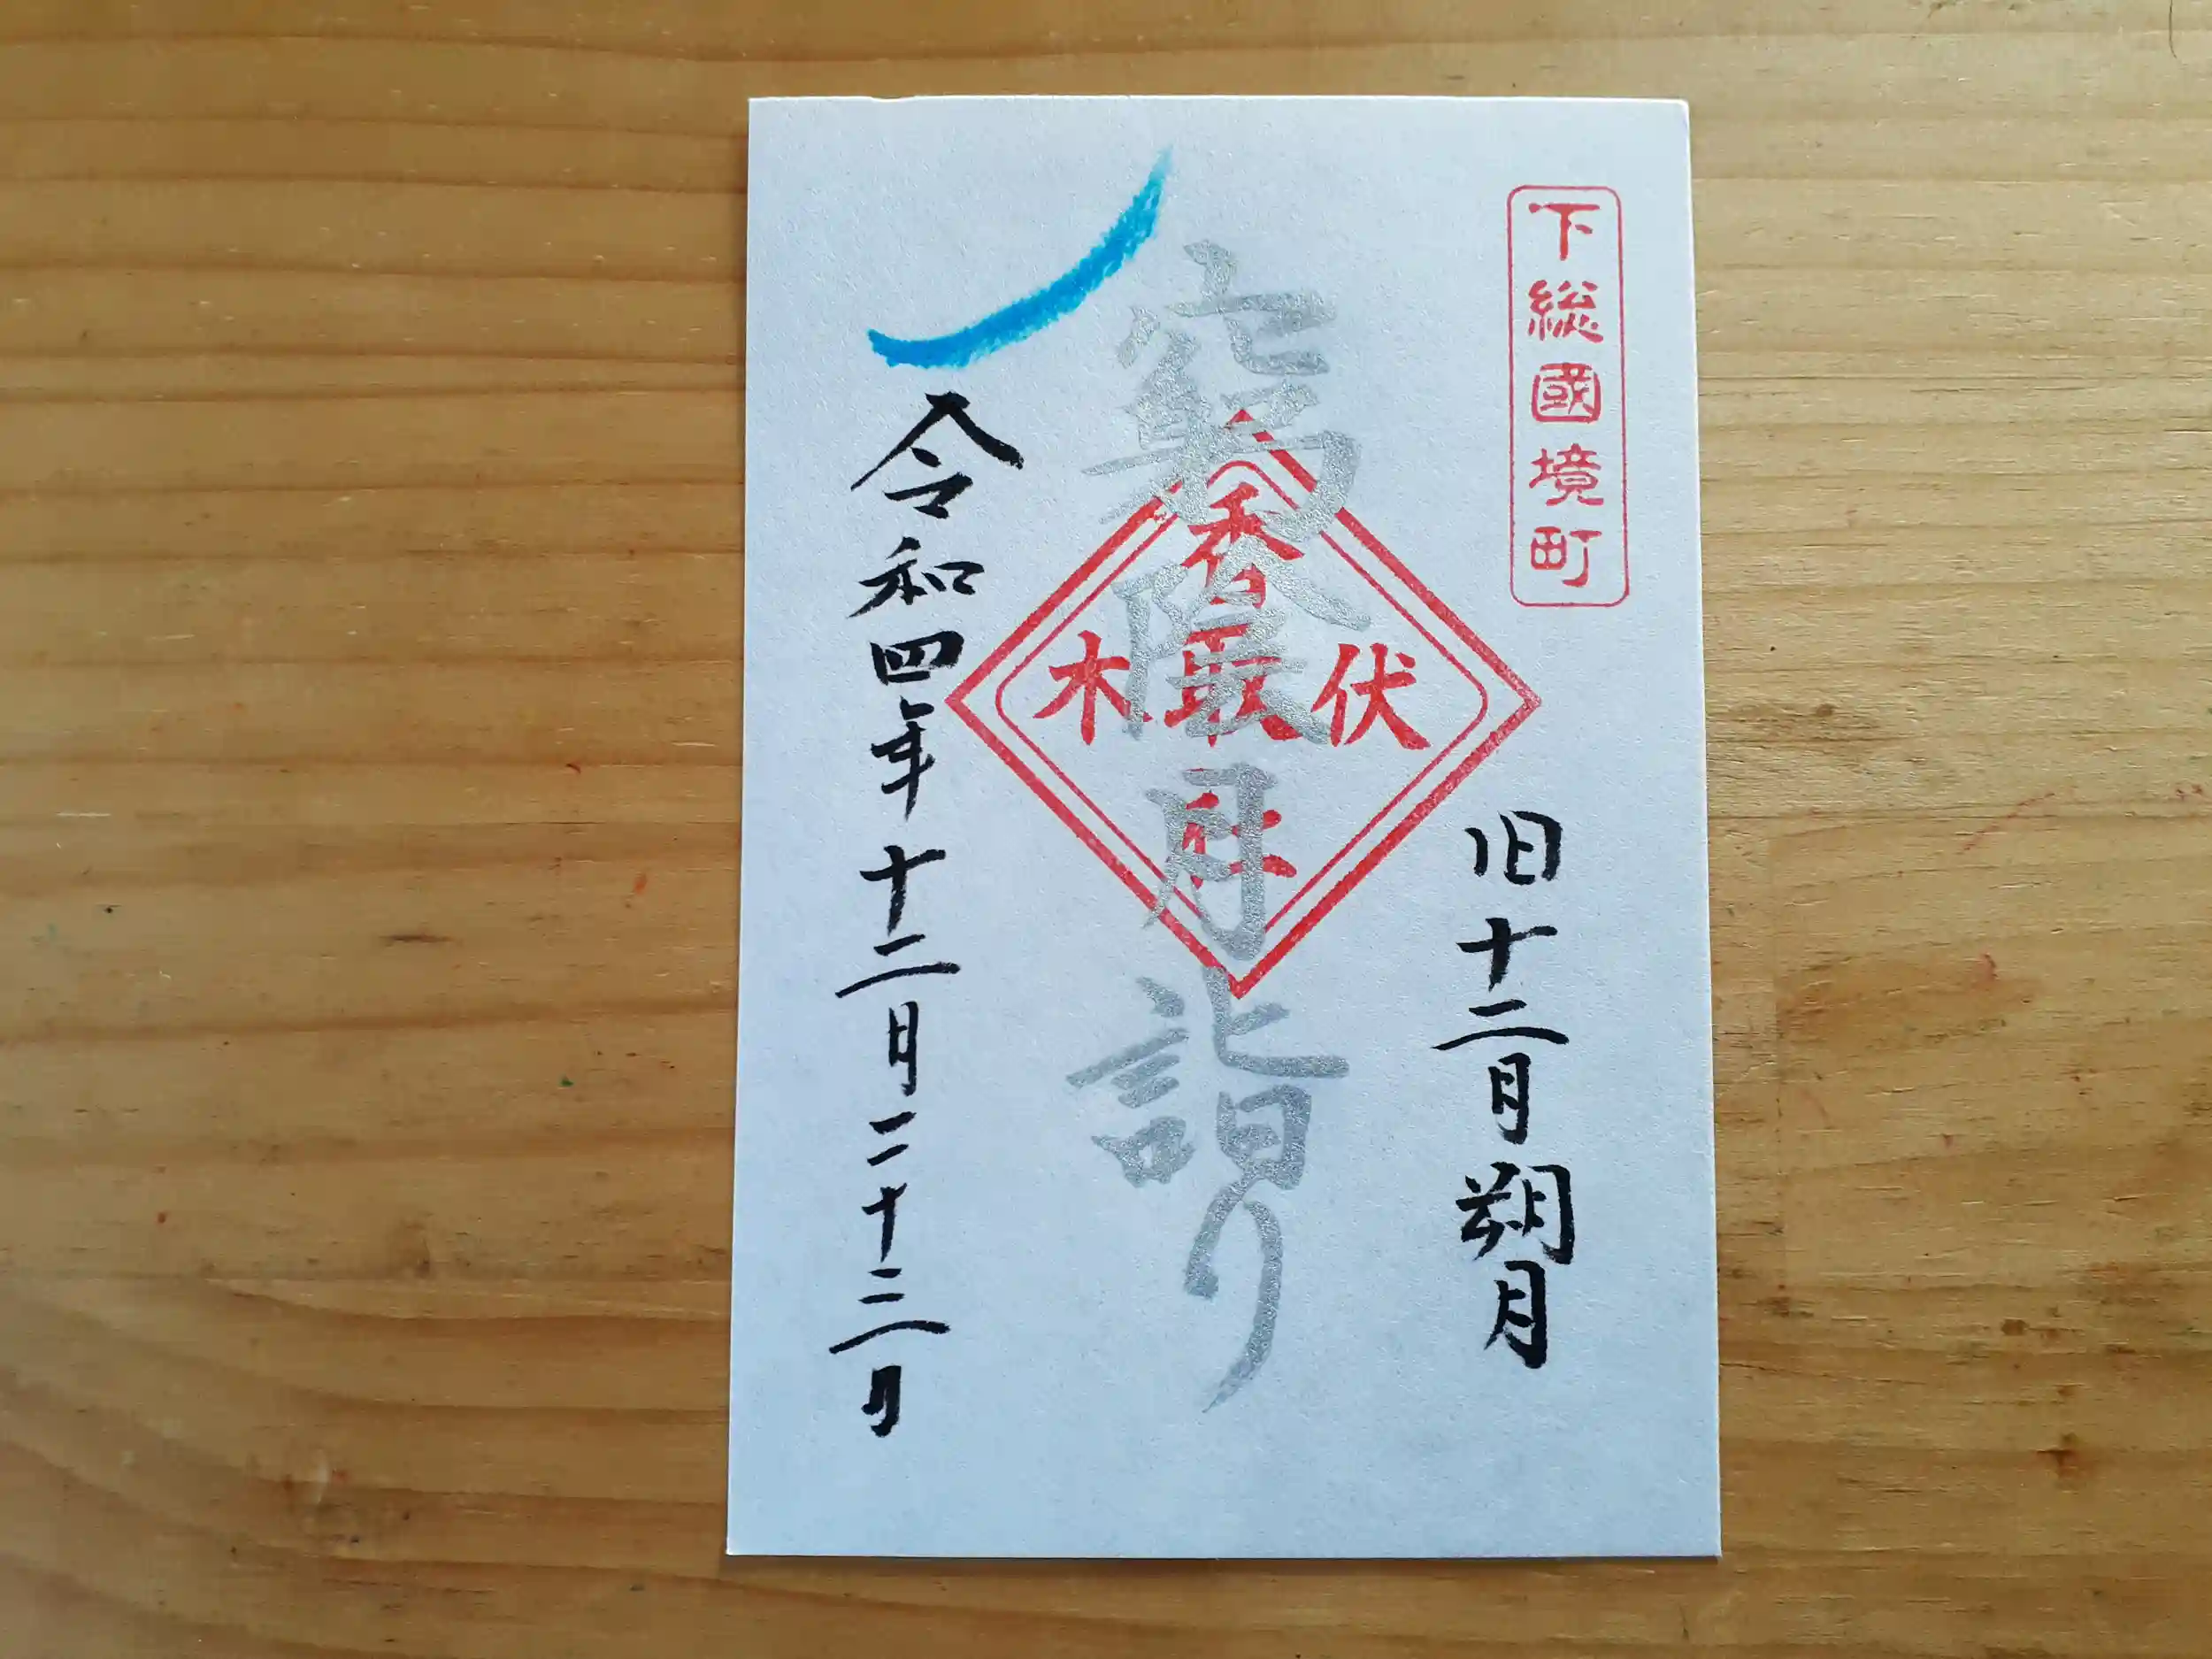 下総國境町
旧十二月朔月
窮陰月詣り
伏木
香取社
令和四年十二月二十三日